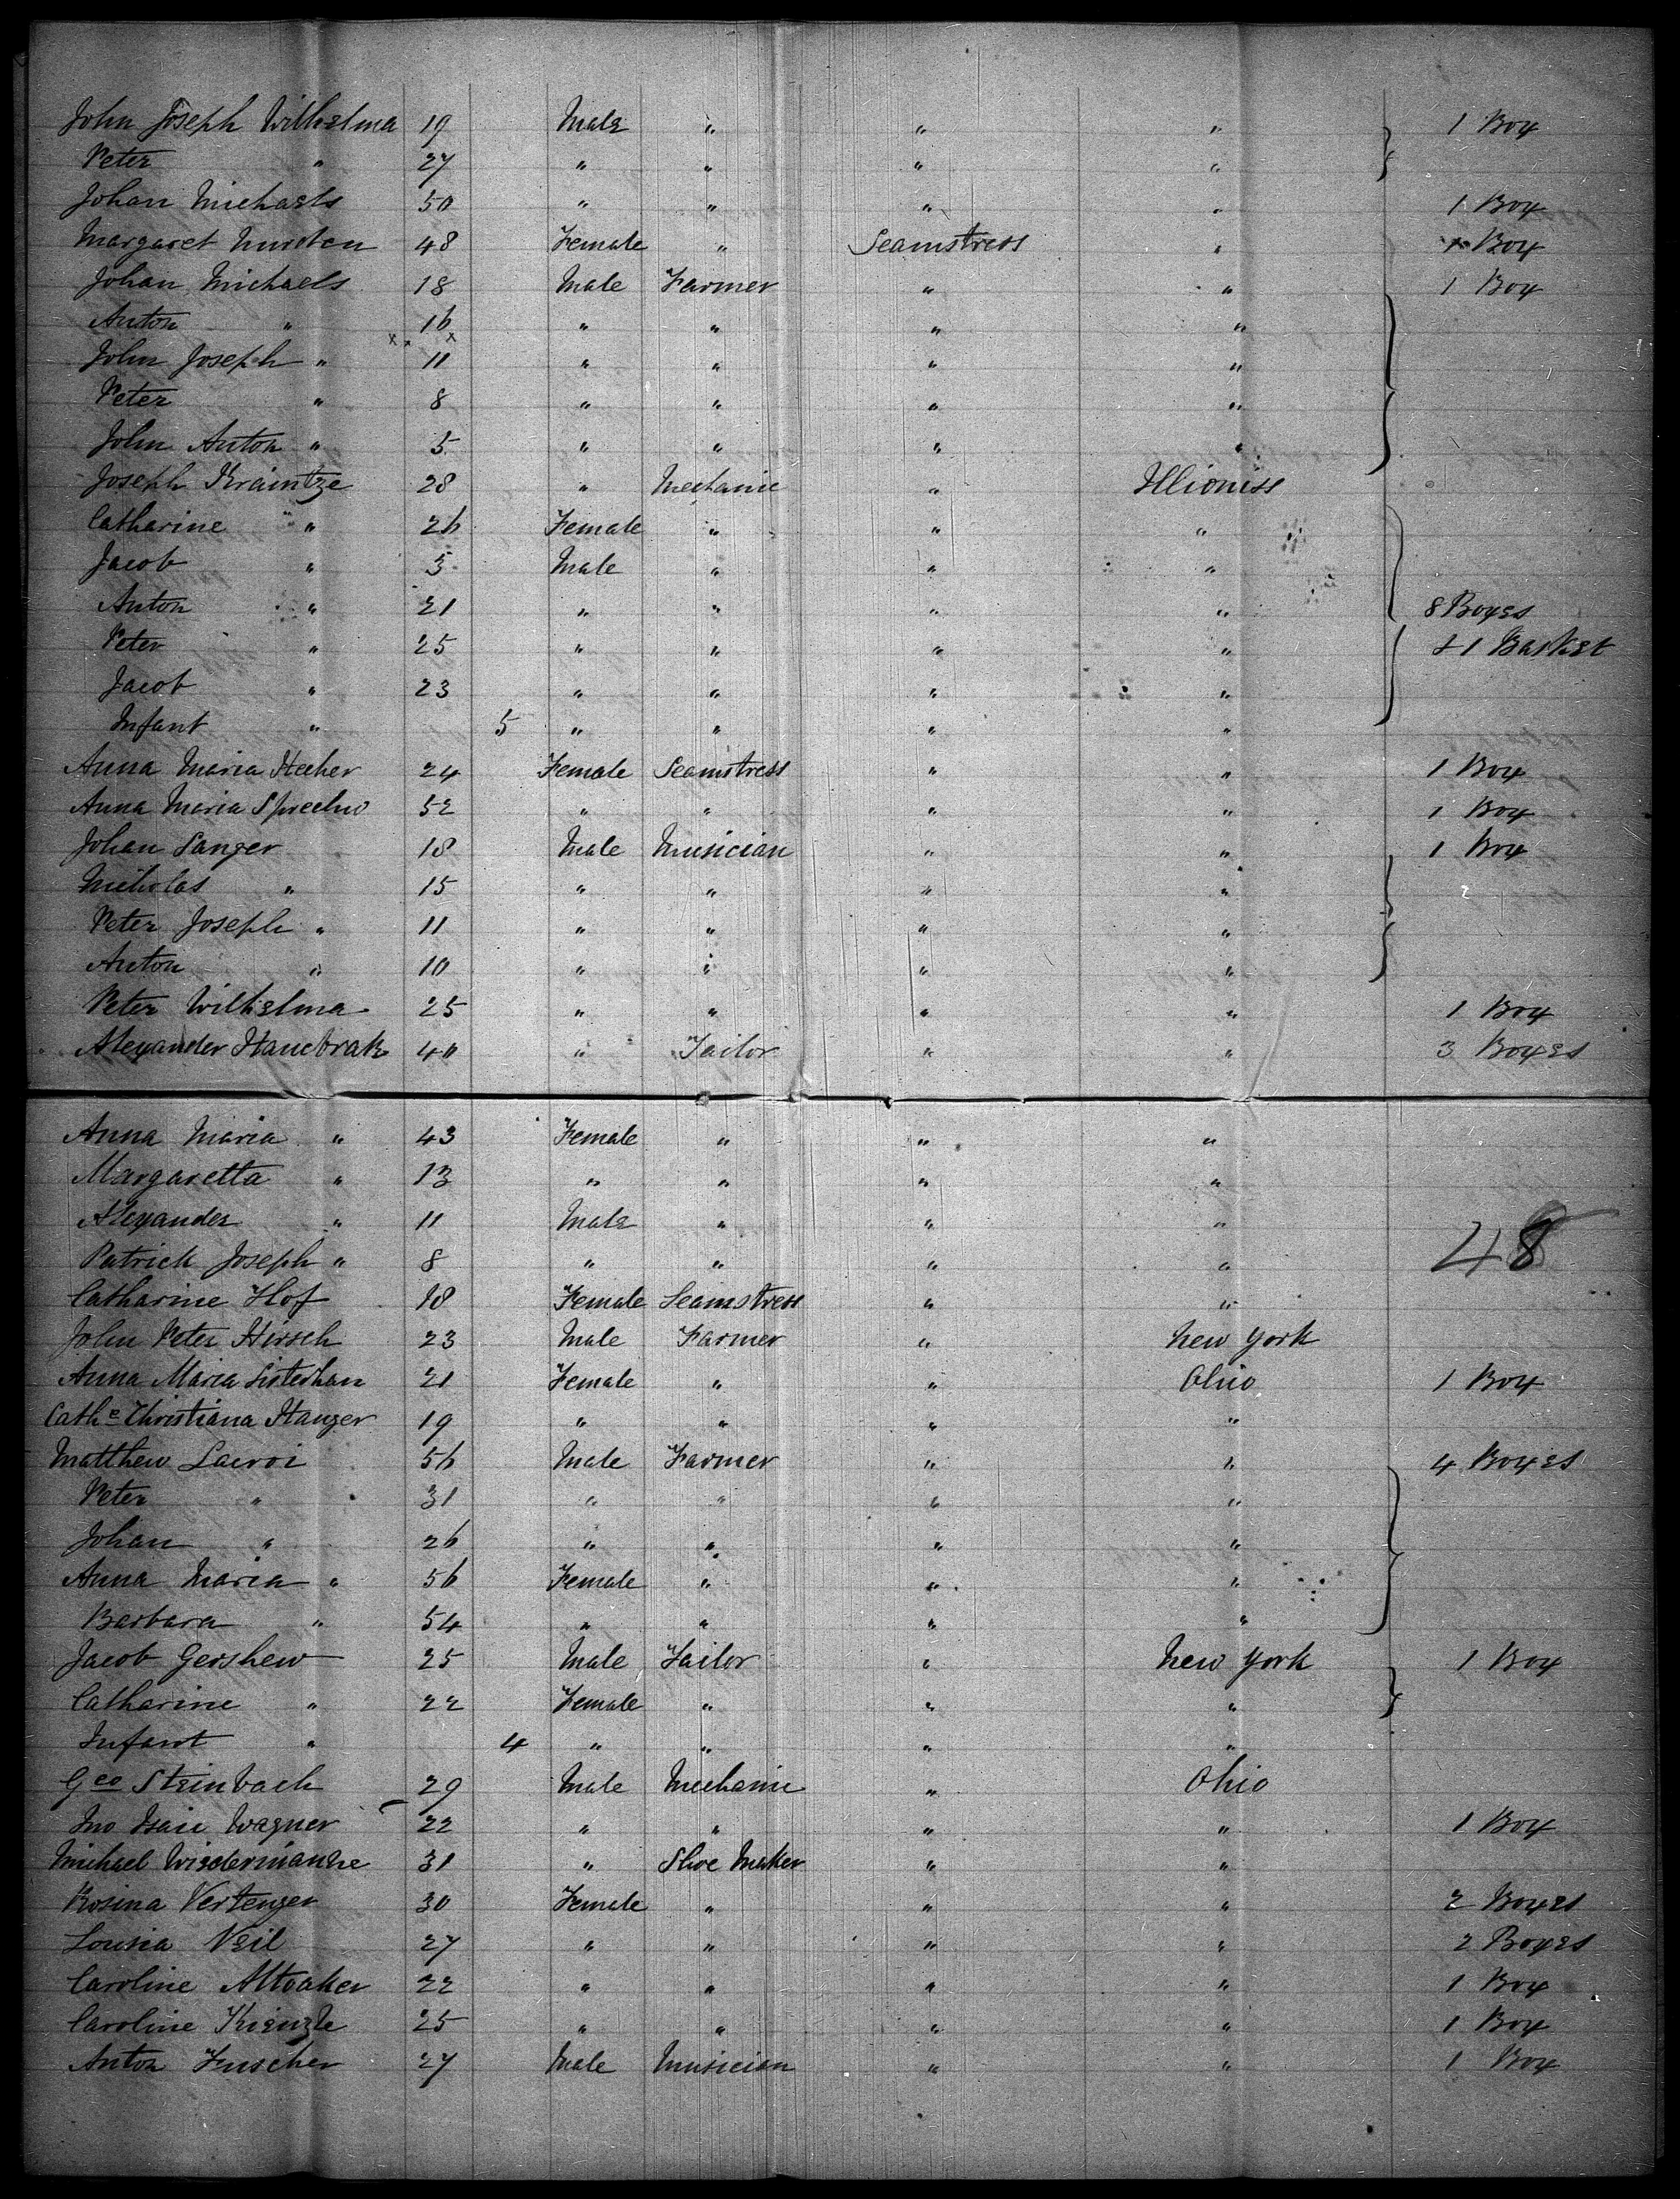 John Joseph Wilhelma 19 Male " " " 1 Box
Peter " 27 " " " "
Johan Michaels 50 " " " " 1 Box
Margaret Mursten 48 Female " Seamstress " 1 Box
Johan Michaels 18 Male Farmer " " 1 Box
Anton " 16 " " " "
John Joseph " 11 " " " "
Peter " 8 " " " "
John Anton " 5 " " " "
Joseph Kraintze 28 " Mechanic " Illioniss
Catharine " 26 Female " " "
Jacob " 3 Male " " "
Anton " 21 " " " " 8 Boxes
Peter " 25 " " " " & 1 Basket
Jacob " 23 " " " "
Infant " 5 " " " "
Anna Maria Hecher 24 Female Seamstress " " 1 Box
Anna Maria 52 " " " " 1 Box
Johan Sanger 18 Male Musician " " 1 Box
Nicholas " 15 " " " "
Peter Joseph " 11 " " " "
Anton " 10 " " " "
Peter Wilhelma 25 " " " " 1 Box
Alexander Hanebrak 40 " Tailor " " 3 Boxes
Anna Maria " 43 Female " " "
Margaretta " 13 " " " "
Alexander " 11 Male " " "
Patrick Joseph " 8 " " " "
48
Catharine Hof 18 Female Seamstress " "
John Peter Hirsch 23 Male Farmer " New York
Anna Maria Listerhan 21 Female " " Ohio 1 Box
Cathe Christiana Hanger 19 " " " "
Matthew Lacroi 56 Male Farmer " " 4 Boxes
Peter " 31 " " " "
Johan " 26 " " " "
Anna Maria " 56 Female " " "
Barbara " 54 " " " "
Jacob Gershew 25 Male Tailor " New York 1 Box
Catharine " 22 Female " " "
Infant " 4 " " " "
Geo Steinbach 29 Male Mechanic " Ohio
Jno Isaic Wagner 22 " " " " 1 Box
Michael Wiedermanne 31 " Shoe Maker " "
Rosina Vertenger 30 Female " " " 2 Boxes
Lousia Veil 27 " " " " 2 Boxes
Caroline Altoaker 22 " " " " 1 Box
Caroline Kienzle 25 " " " " 1 Box
Anton Fuscher 27 Male Musician " " 1 Box